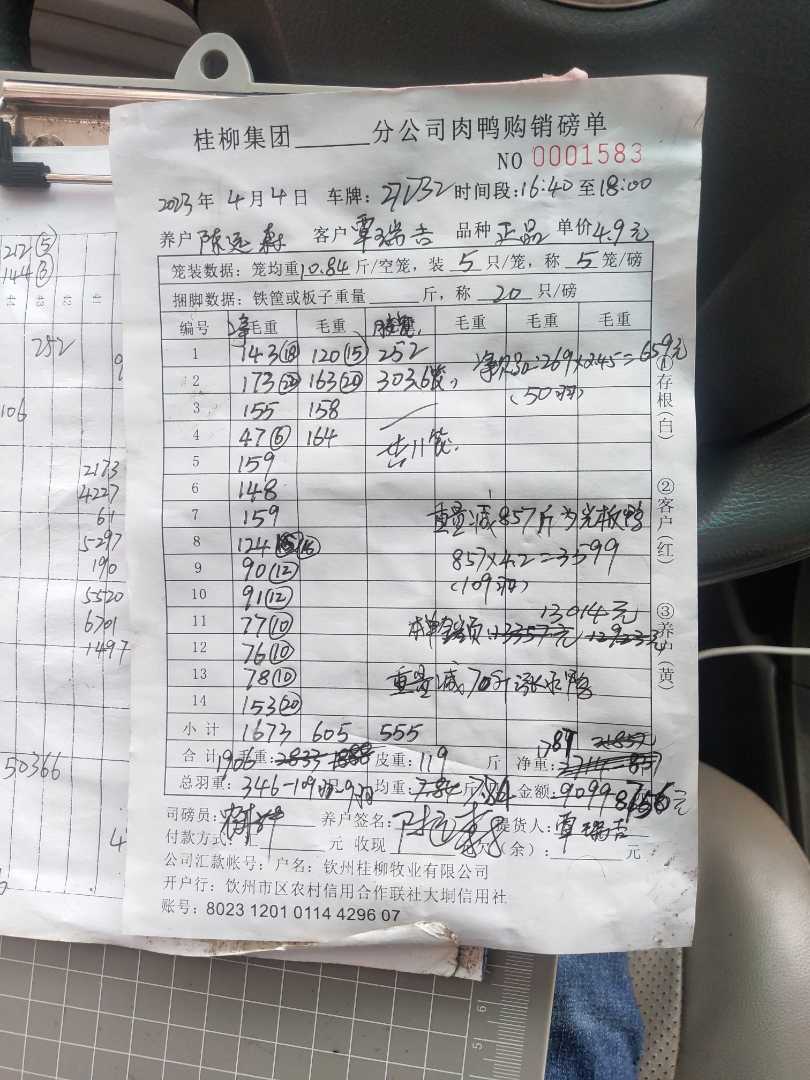 桂柳集团______分公司肉鸭购销磅单
NO 0001583
2023年4月4日 车牌: 时间段:16:40至18:00
养户 客户 覃瑞吉 品种 正品 单价4.9元
笼装数据: 笼均重10.84斤/空笼, 装 5 只/笼, 称 5 笼/磅
捆脚数据: 铁筐或板子重量______斤, 称 20 只/磅
编号 净毛重 毛重 毛重 毛重 毛重
1 143⑱ 120⑮ 252 净次品:269×2.45=659元
2 173⑳ 163⑳ 303.6 (50羽)
3 155 158
4 47⑥ 164 共11笼
5 159
6 148
7 159 重量减857斤为光板鸭
8 124⑯ 857×4.2=3599
9 90⑫ (109羽)
10 91⑫ 13014元
11 77⑩ 本单金额:13357元 12923元
12 76⑩
13 78⑩ 重量减70斤
14 153⑳
小计 1673 605 555
合计 1906 毛重: 2833 皮重:119 斤 净重: 1787
总羽重:346-109羽-9羽 均重:7.84斤 7.84 金额:9099 8756元
司磅员: 养户签名: 提货人:覃瑞吉
付款方式: 元 收现 元 (余):______元
公司汇款帐号: 户名: 钦州桂柳牧业有限公司
开户行: 钦州市区农村信用合作联社大垌信用社
账号: 8023 1201 0114 4296 07
①存根(白)
②客户(红)
③养户(黄)
212⑤
144③
252
106
2173
4227
61
5297
190
5520
6701
1497
50366